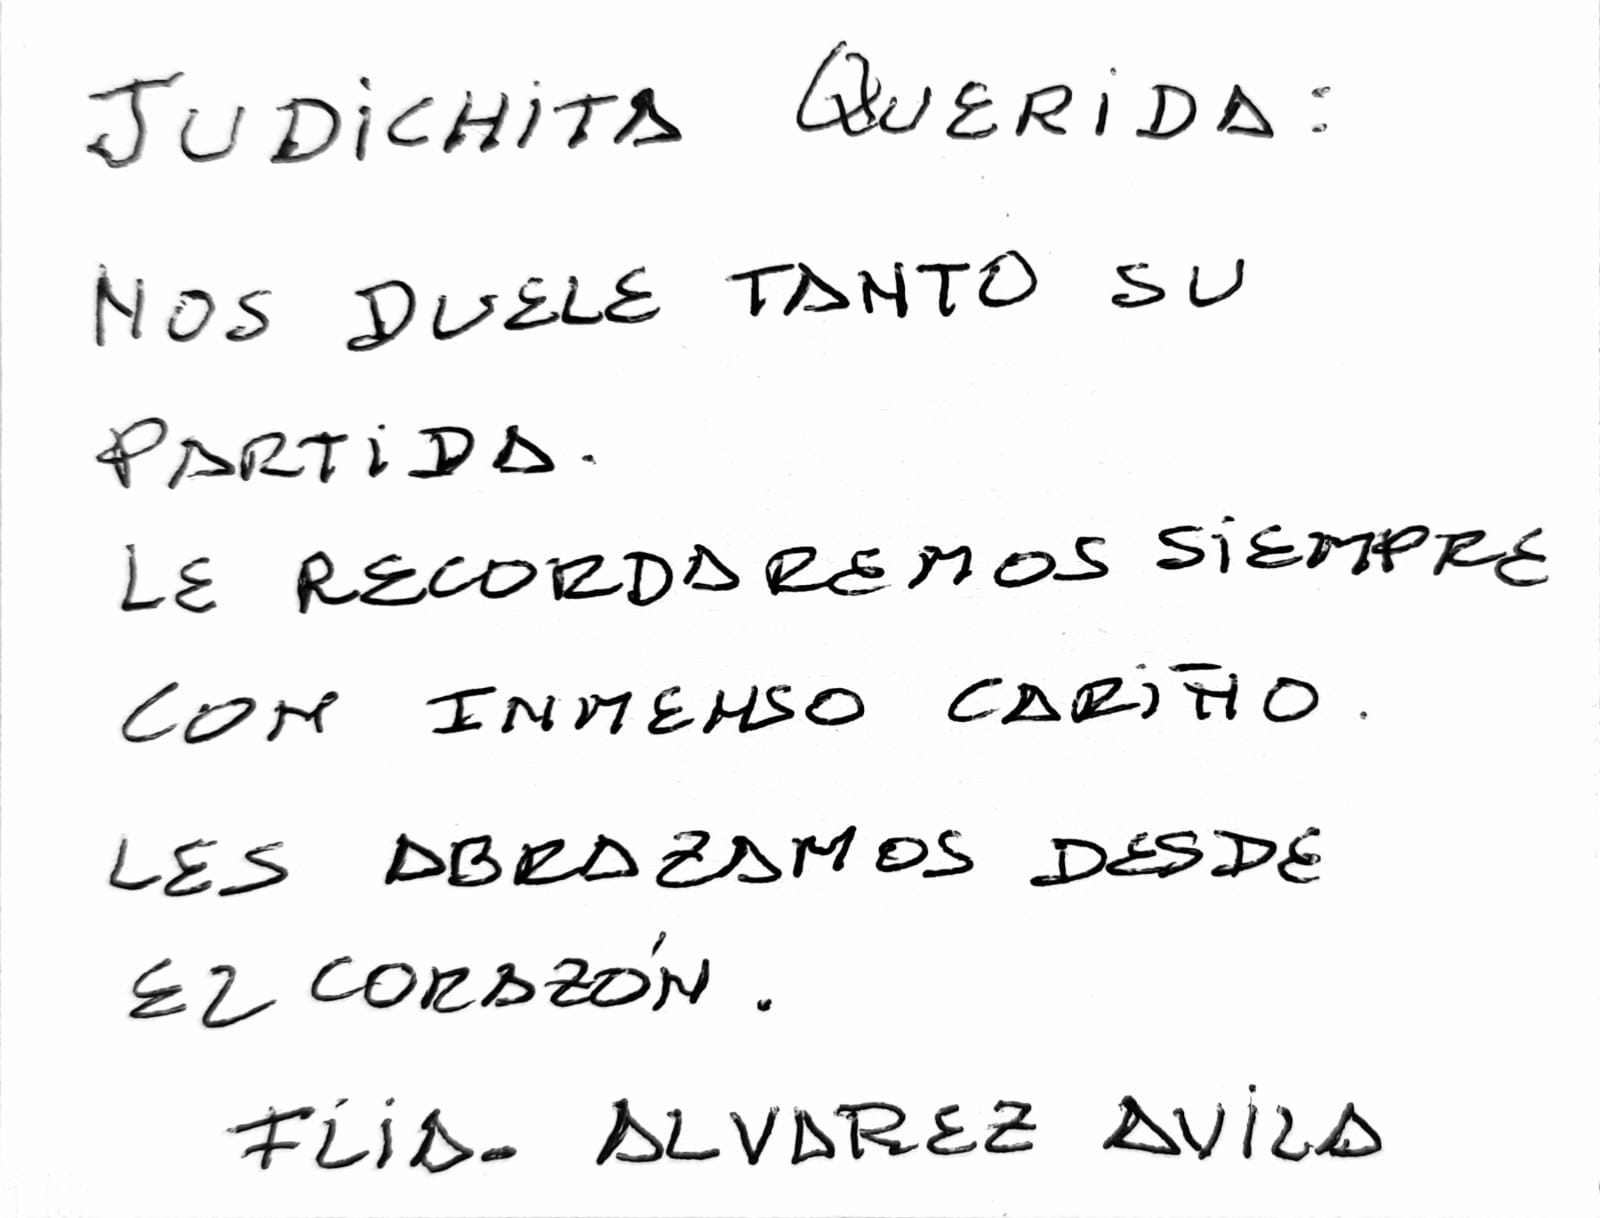 JUDiCHiTA QUERiDA:
NOS DUELE TANTO SU
PARTiDA.
LE RECORDAREMOS SiEMPRE
CON INMENSO CARiÑO.
LES ABRAZAMOS DESDE
EL CORAZÓN.
FLiA. ALVAREZ AViLA